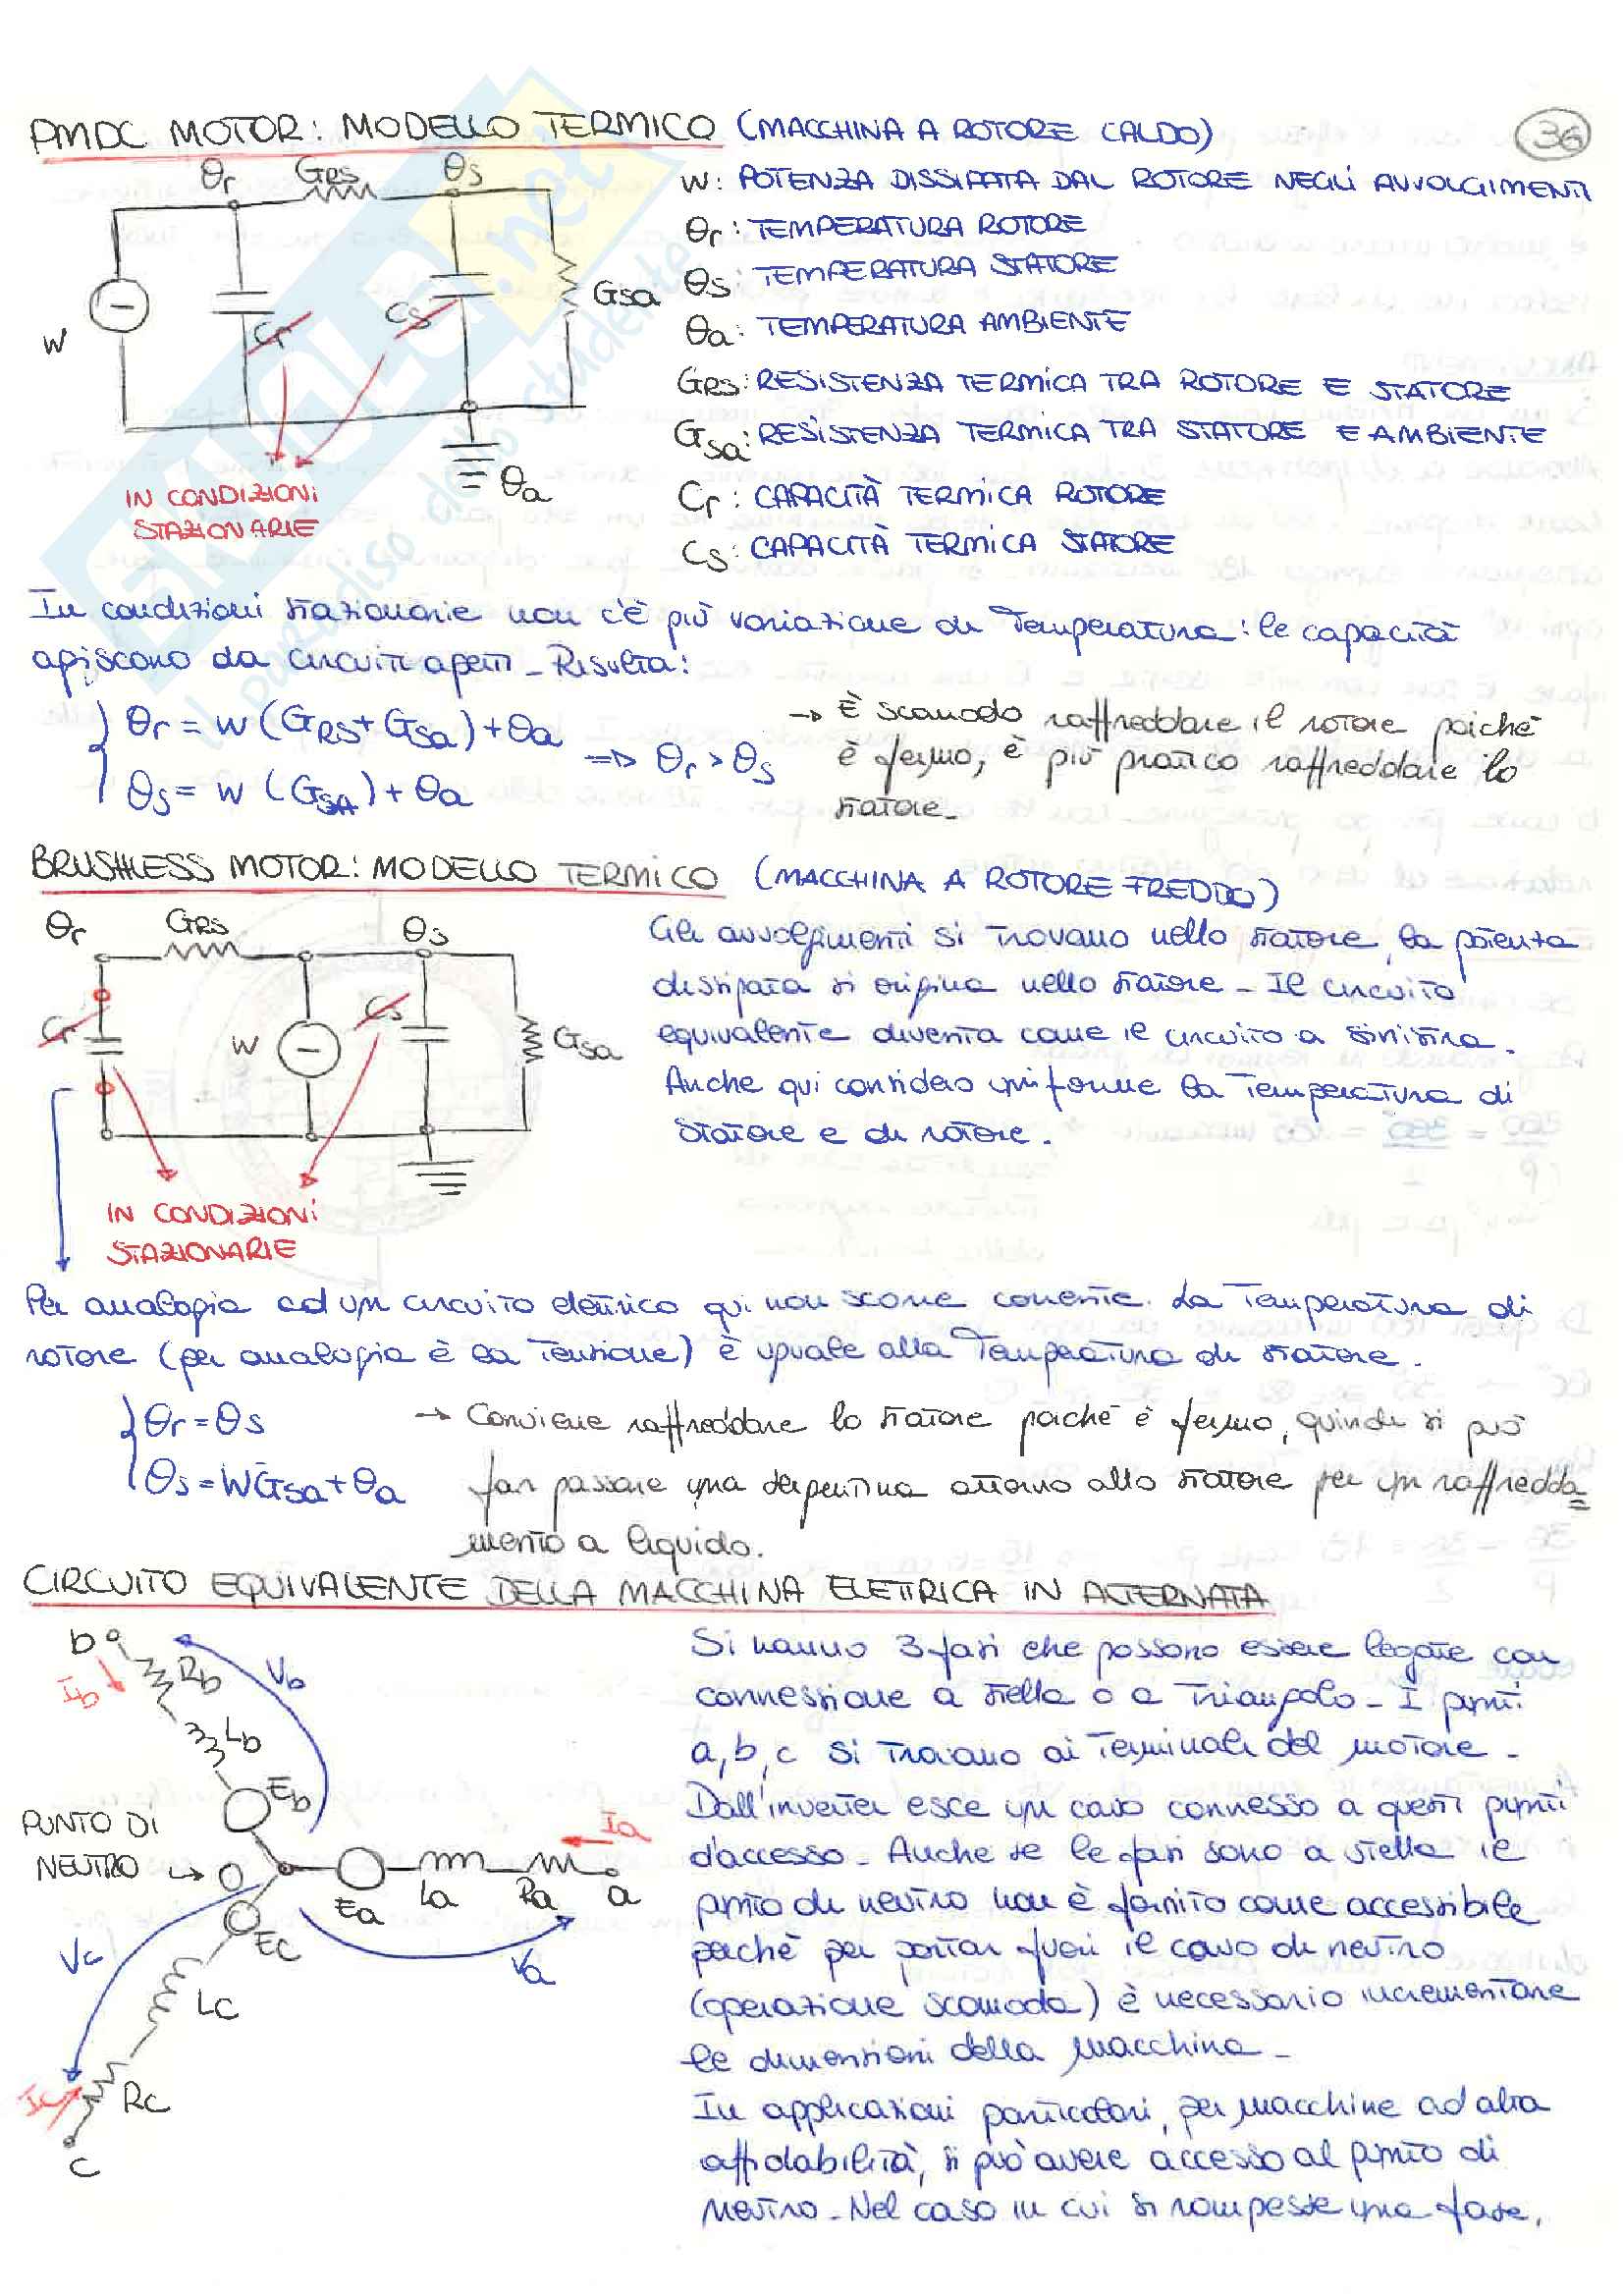 PMDC MOTOR: MODELLO TERMICO (MACCHINA A ROTORE CALDO)
36
θr GRS θs
W
Cr
Cs
Gsa
θa
IN CONDIZIONI
STAZIONARIE
W: POTENZA DISSIPATA DAL ROTORE NEGLI AVVOLGIMENTI
θr: TEMPERATURA ROTORE
θs: TEMPERATURA STATORE
θa: TEMPERATURA AMBIENTE
GRS: RESISTENZA TERMICA TRA ROTORE E STATORE
Gsa: RESISTENZA TERMICA TRA STATORE E AMBIENTE
Cr: CAPACITÀ TERMICA ROTORE
Cs: CAPACITÀ TERMICA STATORE
SKUOLA.net
il paradiso dello studente
In condizioni stazionarie non c'è più variazione di temperatura: le capacità
agiscono da circuiti aperti - Risulta:
θr = W (GRS + Gsa) + θa
θs = W (GSA) + θa
⇒ θr > θs
→ È scomodo raffreddare il rotore poiché
è fermo, è più pratico raffreddare lo
statore -
BRUSHLESS MOTOR: MODELLO TERMICO (MACCHINA A ROTORE FREDDO)
θr GRS θs
Cr
W
Cs
Gsa
IN CONDIZIONI
STAZIONARIE
Gli avvolgimenti si trovano nello statore, la potenza
dissipata si origina nello statore - Il circuito
equivalente diventa come il circuito a sinistra.
Anche qui considero uniforme la temperatura di
statore e di rotore.
Per analogia ad un circuito elettrico qui non scorre corrente. La temperatura di
rotore (per analogia è la tensione) è uguale alla temperatura di statore.
θr = θs
θs = W Gsa + θa
→ Conviene raffreddare lo statore poiché è fermo, quindi si può
far passare una serpentina attorno allo statore per un raffredda=
mento a liquido.
CIRCUITO EQUIVALENTE DELLA MACCHINA ELETTRICA IN ALTERNATA
b
Ib
Rb
Vb
Lb
Eb
PUNTO DI
NEUTRO → O
Ea La Ra a
Ia
Va
Ec
Vc
Lc
Ic
Rc
c
Si hanno 3 fasi che possono essere legate con
connessione a stella o a triangolo - I punti
a, b, c si trovano ai terminali del motore -
Dall'inverter esce un cavo connesso a questi punti
d'accesso - Anche se le fasi sono a stella il
punto di neutro non è fornito come accessibile
perchè per portar fuori il cavo di neutro
(operazione scomoda) è necessario incrementare
le dimensioni della macchina -
In applicazioni particolari, per macchine ad alta
affidabilità, si può avere accesso al punto di
neutro - Nel caso in cui si rompesse una fase,